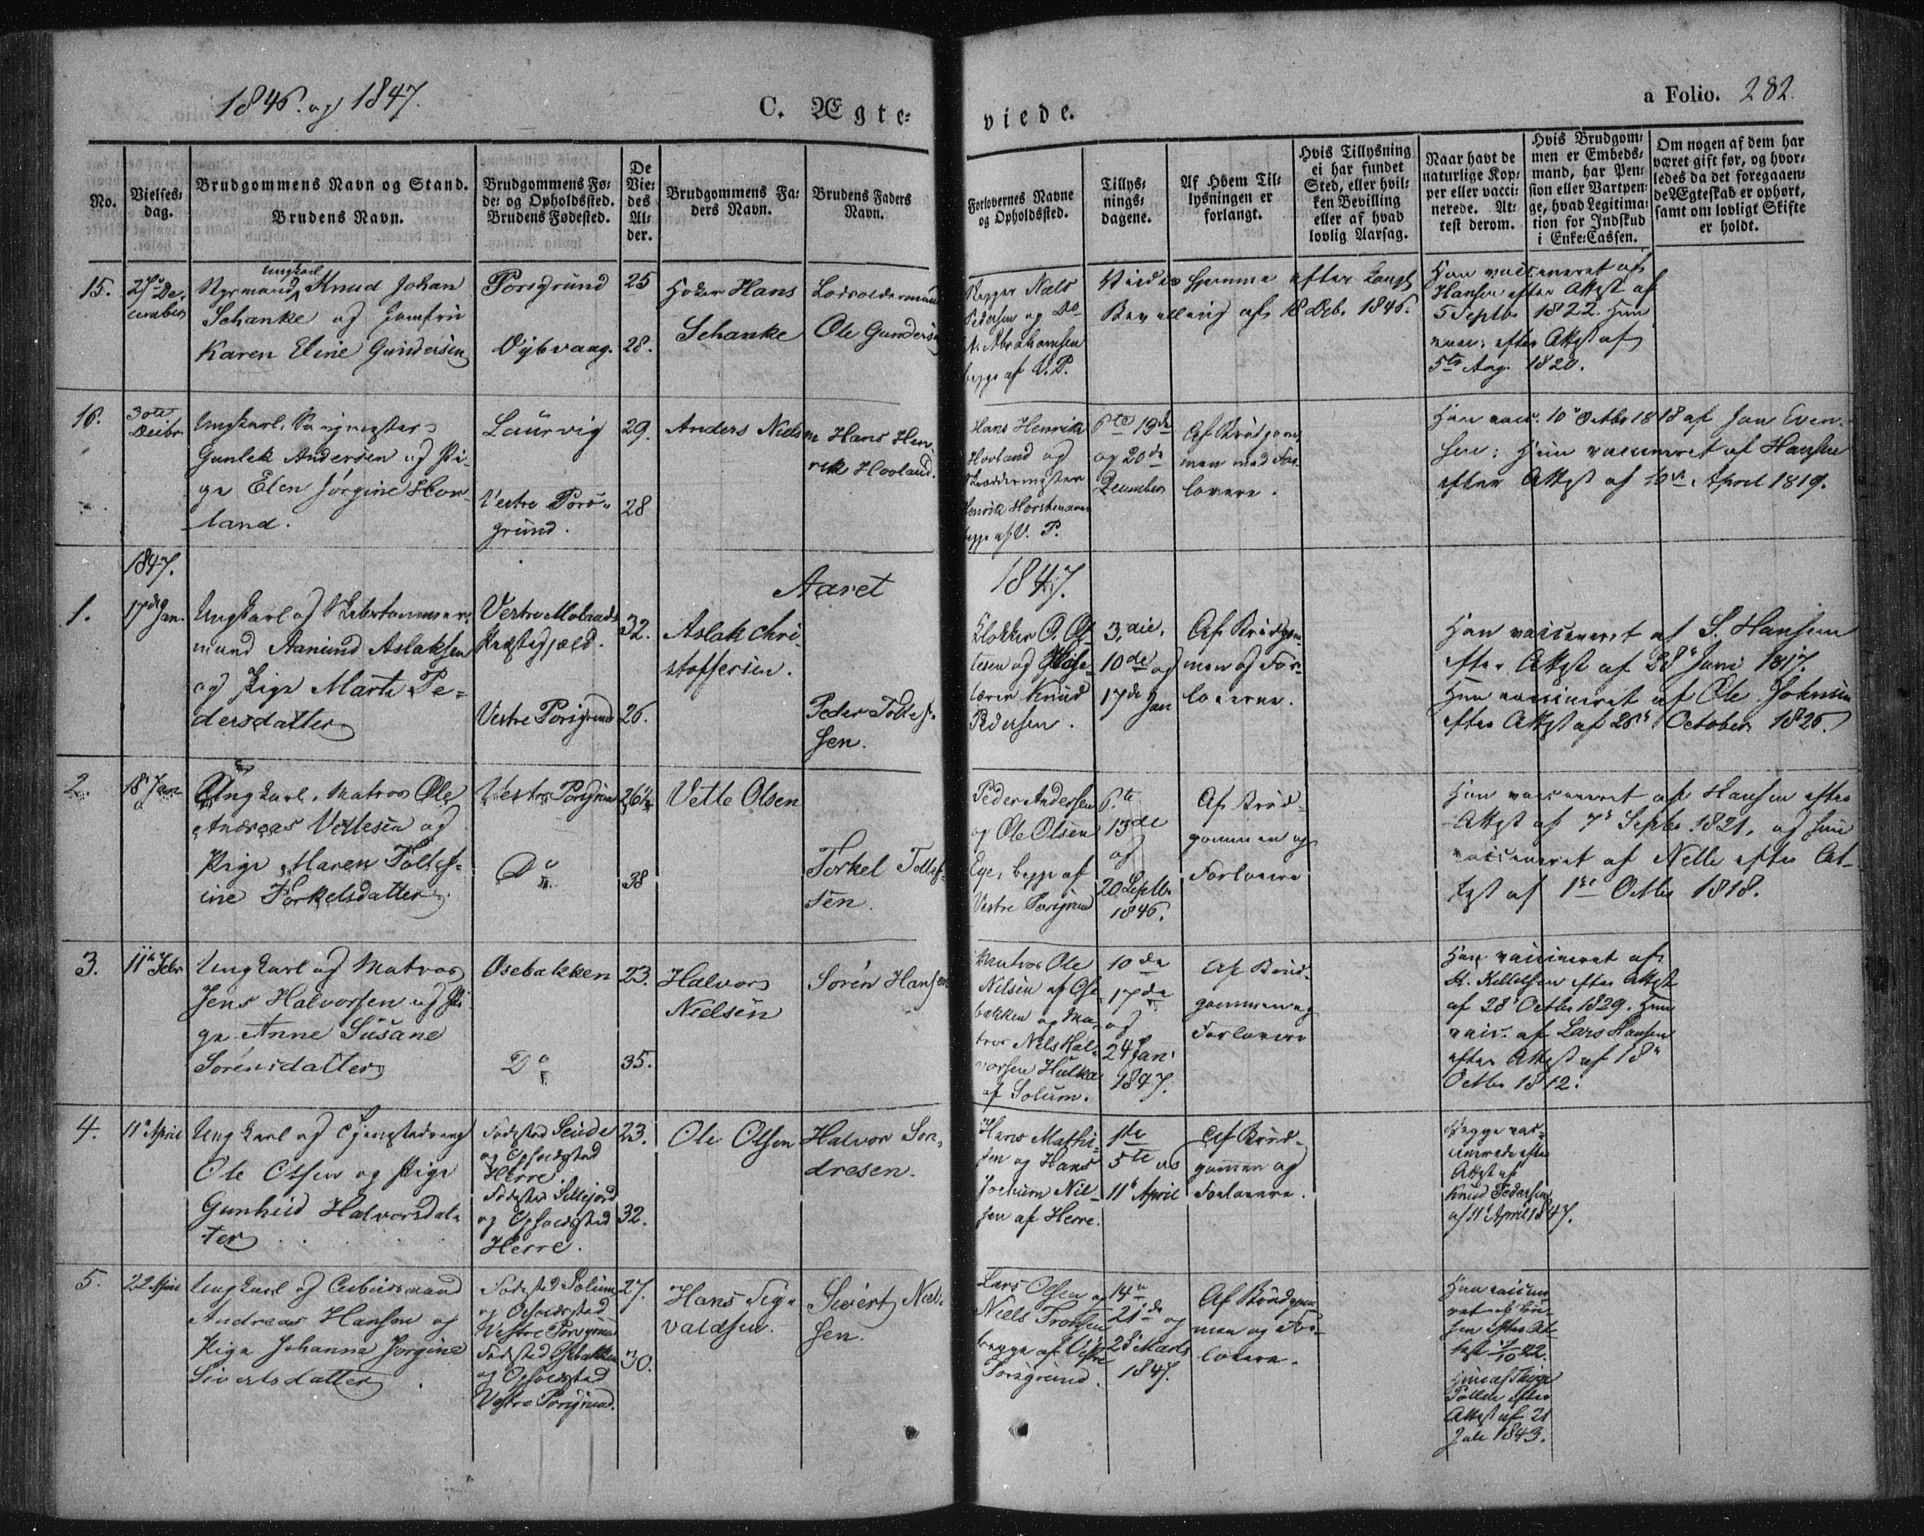 1846. og 1847.
C. Ægte=
viede.
a Folio. 282.
No.
Vielses-
dag.
Brudgommens Navn og Stand.
Brudens Navn.
Brudgommens Fø-
de- og Opholdssted.
Brudens Fødested.
De
Vie-
des
Al-
der.
Brudgommens Fa-
ders Navn.
Brudens Faders
Navn.
Forlovernes Navne
og Opholdssted.
Tillys-
nings-
dagene.
Af Hvem Til-
lysningen er
forlangt.
Hvis Tillysning
ei har fundet
Sted, eller hvil-
ken Bevilling
eller af hvad
lovlig Aarsag.
Naar havt de
naturlige Kop-
per eller vacci-
nerede. At-
test derom.
Hvis Brudgom-
men er Embeds-
mand, har Pen-
sion eller Vartpen-
ge, hvad Legitima-
tion for Indskud
i Enke-Cassen.
Om nogen af dem har
været gift før, og hvor-
ledes da det foregaaen-
de Ægteskab er ophørt,
samt om lovligt Skifte
er holdt.
15.
27de De-
cember
Ungkarl
Knud Johan
Schanke og Jomfru
Karen Eline Gundersen
Porsgrund
Dybvaag.
25
28.
Hans
Schanke
Ole Gundersen
Niels
Pedersen og
Abrahamsen
begge af V. P.
Viede hjemme efter Kongl
Bevilling af 18 Dcb. 1846.
Han vaccineret af
Hansen efter Attest af
5 Septbr 1822. Hun
vacc. efter Attest af
5te Aug. 1820.
16.
30te
Decbr
Ungkarl,
Gunlek Andersen og Pi-
ge Elen Jørgine Hov-
land.
Laurvig
Vestre Pors-
grund.
29.
28
Anders Nielsen
Hans Hen-
rik Hovland.
Hans Henrik
Hovland og
Henrik Horstmann
begge af V. P.
6te 13de
og 20de
December
Af Brudgom-
men med For-
lovere.
Han vacc. 10de Octbr 1818 af Jan Even-
sen; Hun vaccineret af Hansen
efter Attest af April 1819.
1847.
Aaret
1847.
1.
17de Jan.
Ungkarl og
mand Aamund Aslaksen
og Pige Marte Pe-
dersdatter
Vestre Molands
Præstegjæld.
Vestre Porsgrund
32.
26.
Aslak Chri-
stoffersen.
Peder Tollef-
sen.
Klokker O. Ol-
sen og
lærer Knud
Pedersen.
3die,
10de og
17de Jan
Af Brudgom-
men og For-
loverne.
Han vaccineret af S. Hansen
efter Attest af 28de Juni 1817.
Hun vaccineret af Ole Johnsen
efter Attest af 28de October 1826.
2.
18de Jan
Ungkarl, Matros Ole
Andreas Vettesen og
Pige Maren Tollef-
ine Torkelsdatter
Vestre Porsgrund
Do
26½
38
Vette Olsen
Torkel Tollef-
sen.
Peder Andersen
og Ole Olsen
Eger begge af
Vestre Porsgrund
6te
13de
og
20 Septbr
1846.
Af Brud-
gommen og
Forlovere
Han vaccineret af Hansen efter
Attest af 7de Septbr 1821, og Hun
vaccineret af Nelle efter At-
test af 1ste Octbr 1818.
3.
11te Febr
Ungkarl og Matros
Jens Halvorsen og Pi-
ge Anne Susane
Sørensdatter
Osebakken
Do
23.
35.
Halvor
Nielsen
Søren Hansen
Matros Ole
Nilsen af Ose-
bakken og Ma-
tros Niels Hal-
vorsen Hulka
af Solum.
10de
17de
og
24 Jan
1847.
Af Brud-
gommen og
Forlovere
Han vaccineret af
H. Kittelsen efter Attest
af 28de Octbr 1829. Hun
vacc. af Lars Hansen
efter Attest af 18de
Octbr 1812.
4.
11te April
Ungkarl og
Ole Olsen og Pige
Gunhild Halvorsdat-
ter
Fødested Seude
og Opholdssted
Herre.
Fødested Sillejord
og Opholdssted
Herre.
23.
32.
Ole Olsen
Halvor Son-
dresen.
Hans Mathi-
sen og Hans
Jochum Nil-
sen af Herre.
1te
5te og
11te April
Af Brud-
gommen og
Forlovere.
Begge vac-
cinerede efter
Attest af
Knud Pedersen
af 11te April 1847.
5.
22 April
Ungkarl og Arbeidsmand
Andreas Hansen og
Pige Johanna Jørgine
Sivertsdatter
Fødested Solum
og Opholdssted
Vestre Porsgrund
Fødested Osebakken
og Opholdssted
Vestre Porsgrund.
27.
30.
Hans Sig-
valdsen.
Sivert Niel-
sen.
Lars Olsen og
Niels Frossen
begge af Vestre
Porsgrund.
14de
21de og
28de Marts
1847.
Af Brudgom-
men og For-
lovere.
Han vaccine-
ret af
sen efter At-
test 1/10 22.
Hun af
efter
Attest af 21
Juli 1843.